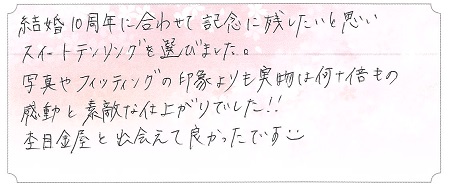 結婚10周年に合わせて記念に残したいと思い
スイートテンリングを選びました。
写真やフィッティングの印象よりも実物は何十倍もの
感動と素敵な仕上がりでした!!
杢目金屋と出会えて良かったです